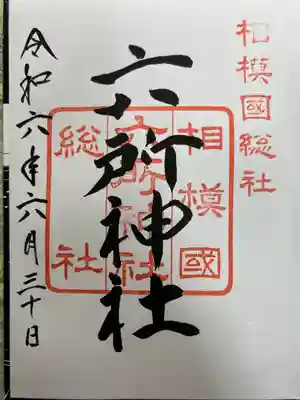 相模國総社
六所神社
相模國
六所神社
総社
令和六年六月三十日